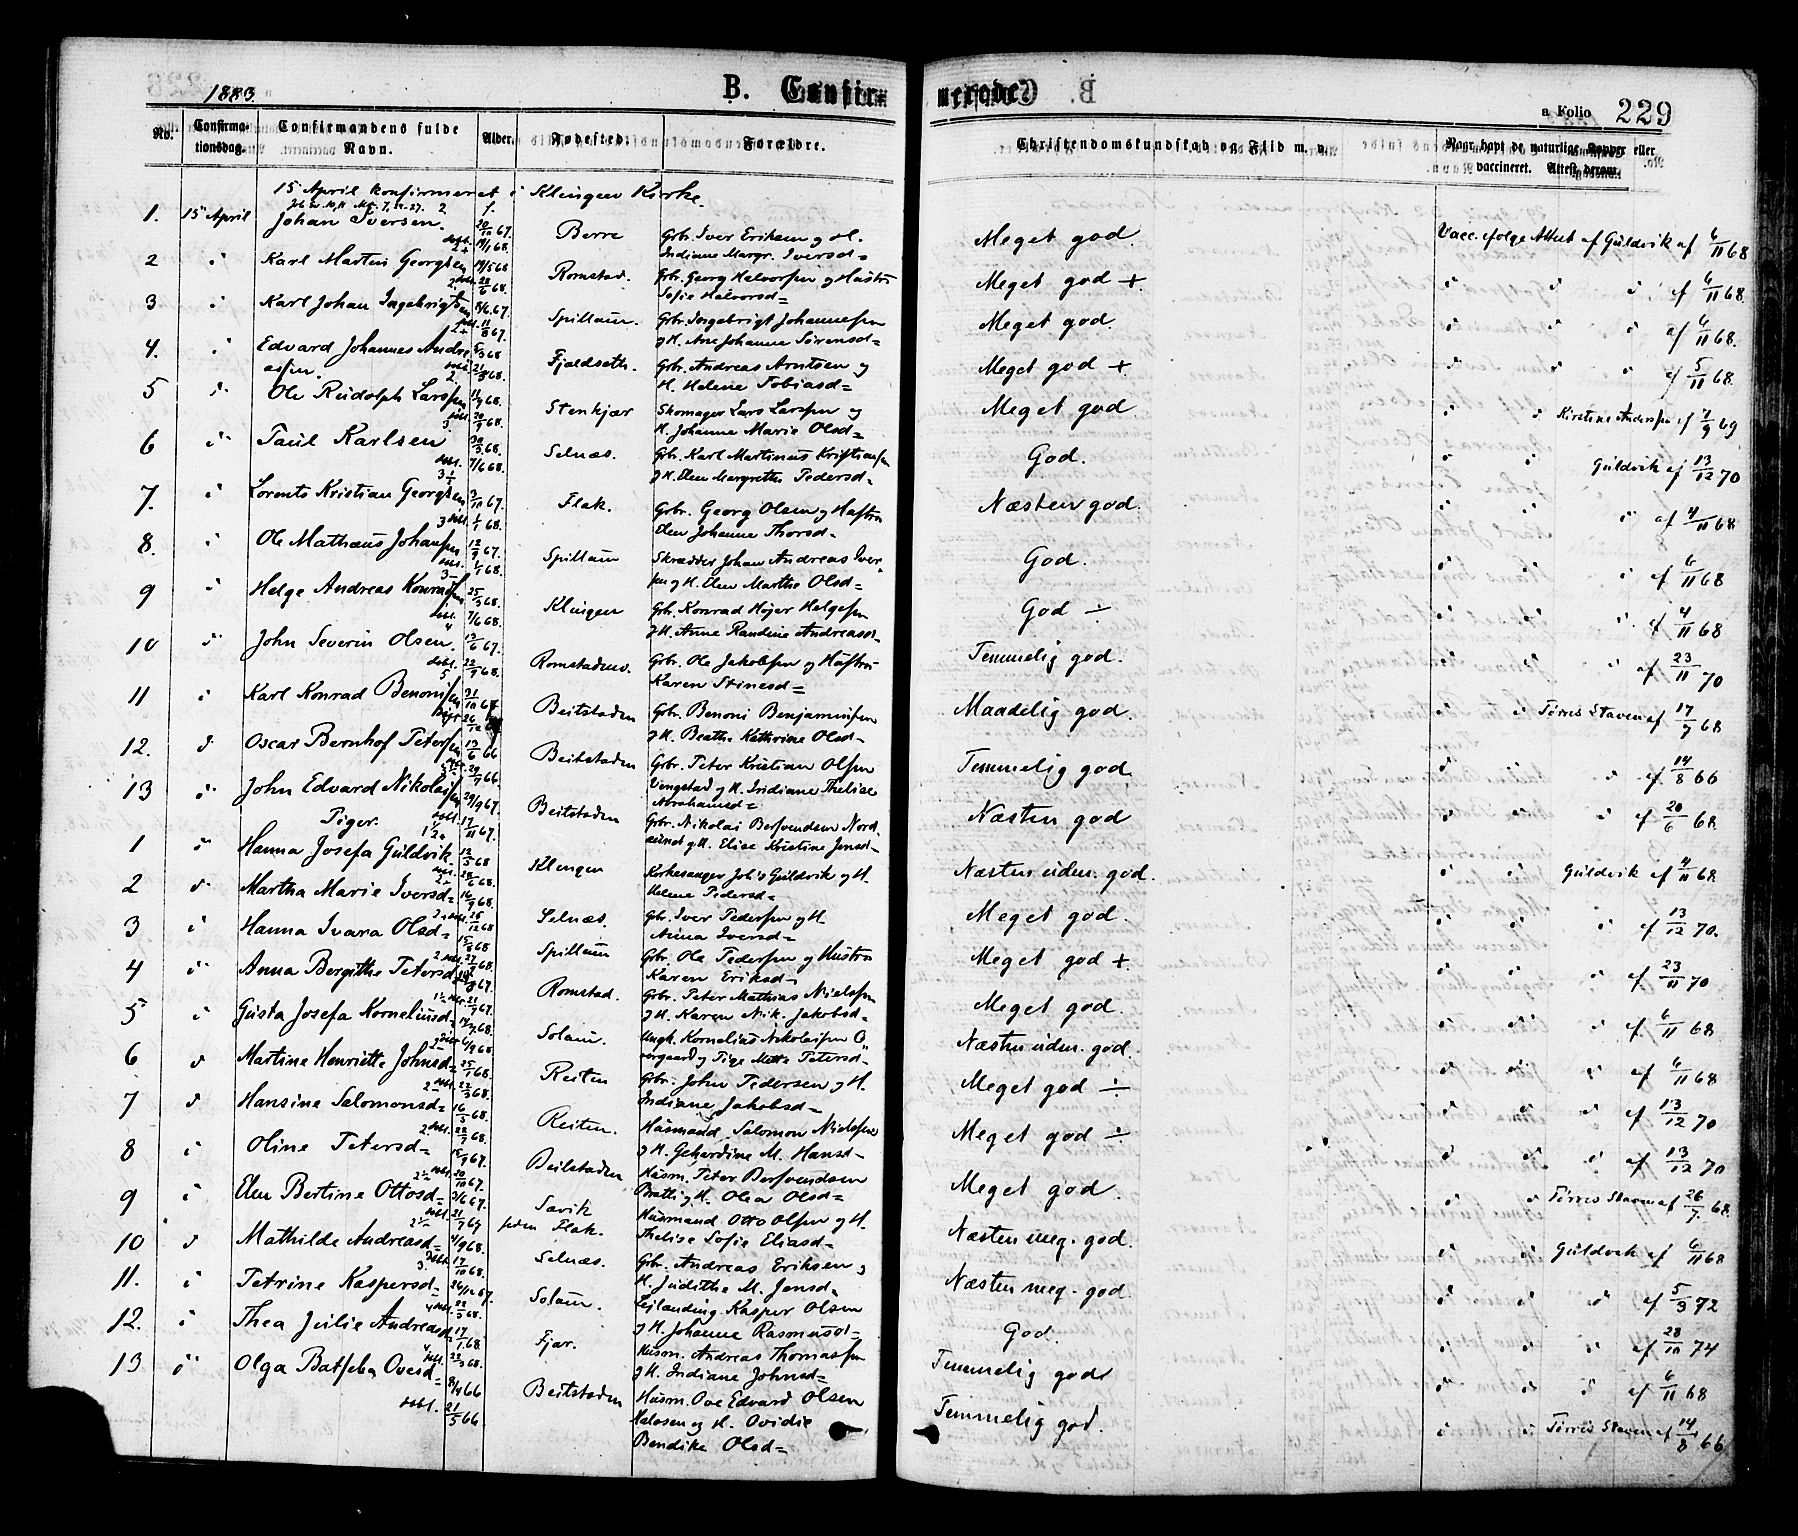 1883
B. Confirmerede.
a Folio 229
No. Confirmationsdag. Confirmandens fulde Navn. Alder. Fødested. Forældre. Christendomskundskab og Flid m. v. Naar havt de naturlige Kopper eller vaccineret. Attest derom.
15 April konfirmeret i Klingen Kirke.
1. 15 April Johan Iversen. 20/10 67. Berre Gbr. Iver Eriksen og H. Meget god. Vacc. efølge Attest af Guldvik af 6/11 68
døbt. 19/1 68. Indiane Margr. Iversd=
2 " Karl Martin Georgsen 19/5 68 Romstad. Gbr. Georg Halvorsen og Hustru Meget god + " " " af 6/11 68.
Sofie Halvorsd=
3 " Karl Johan Ingebrigtsen 8/6 67. Spillum. Gbr. Ingebrigt Johannesen Meget god. " " " af 6/11 68.
døbt. 11/8 67. og H. Ane Johanna Sørensd=
4. " Edvard Johannes Andreassen. 5/3 68 Fjeldseth. Gbr. Andreas Arntsen og Meget god + " " " af 5/11 68.
døbt. H. Helene Tobiasd=
5 " Ole Rudolph Larssen Stenkjær Skomager Lars Larssen og Meget god. " " Kirstine Anderssen af 7/9 69
H. Johanna Marie Olsd=
6 " Paul Karlsen 30/3 68. Selnæs. Gbr. Karl Martinus Kristiansen God. " " Guldvik af 13/12 70
døbt. 7/6 68. og H. Elen Margrethe Pedersd=
7. " Lorents Kristian Georgsen 3/10 67. Flak. Gbr. Georg Olsen og Hustru Næsten god. " " " af 4/11 68
døbt. 1/1 68. Elen Johanna Thorsd=
8. " Ole Mathæus Johansen 12/9 67. Spillum Skrædder Johan Andreas Iver- God. " " " af 6/11 68
døbt. 1/1 68. sen og H. Elen Marthe Olsd=
9 " Helge Andreas Konradsen 25/3 68. Klingen Gbr. Konrad Højer Helgesen God ÷ " " " af 4/11 68
døbt. 7/6 68. og H. Anne Randine Andreasd=
10 " John Severin Olsen. 13/6 67. Romstadmo. Gbr. Ole Jakobsen og Hustru Temmelig god. " " " af 23/11 70
døbt. 22/9 68. Karen Stinesd=
11 " Karl Konrad Benonisen 31/10 67 Beitstaden Gbr. Benoni Benjaminsen Maadelig god. " " Tørris Staven af 17/7 68
og H. Beathe Kathrine Olsd=
12. " Oscar Bernhof Petersen 13/6 66 Beitstaden Gbr. Peter Kristian Olsen Temmelig god. " " " af 14/8 66
Vengstad og H. Indiane Thelise Abrahamsd=
13 " John Edvard Nikolaisen 29/9 67. Beitstaden Gbr. Nikolai Berfvendsen Nord- Næsten god " " " af 20/6 68
døbt. 17/11 67. sund og H. Elise Kristine Jensd=
Piger.
1 " Hanna Josefa Guldvik 12/3 68 Klengen Kirkesanger Joh's Guldvik og H. Næsten uden. god. " " Guldvik af 4/11 68
Helene Pedersd=
2 " Martha Marie Iversd= 16/9 68. Selnæs. Gbr. Iver Pedersen og H. Meget god. " " " af 13/12 70.
Anna Iversd=
3 " Hanna Ivara Olsd= 15/8 68 Spillum Gbr. Ole Pedersen og Hustru Meget god +. " " " af 23/11 70
Karen Eriksd=
4 " Anna Bergithe Petersd= Romstad. Gbr. Peter Mathias Nielssen Meget god. " " " af 6/11 68
og H. Karen Nik. Jakobsd=
5 " Gusta Josefa Korneliusd= Solum. Ungk. Kornelius Nikolaisen O- Næsten uden. god. " " " af 6/11 68
vergaard og Pige Mette Petersd=
6 " Martine Henriette Johnsd= 25/1 68. Reiten Gbr. John Pedersen og H. Meget god ÷ " " " af 13/12 70
Indiane Jakobsd=
7 " Hansine Salomonsd= 16/5 68. Reiten. Husmand Salomon Nielssen Meget god ÷ " " " af 13/12 70
og H. Gekerdine M. Hansd=
8 " Oline Petersd= Beitstaden Husm. Peter Berfvendsen Meget god. " " Tørris Staven af 26/7 68.
Bratli og H. Olea Olsd=
9 " Elen Bertine Ottosd= 2/6 67. Savik Husmand Otto Olsen og H. Næsten meg. god. " " Guldvik af 6/11 68
Flak. Thelise Sofie Eliasd=
10 " Mathilde Andreasd= 4/9 68. Selnæs. Gbr. Andreas Eriksen og Næsten meg. god. " " " af 5/3 72
døbt. 17/10 68. H. Judithe M. Jensd=
11. " Petrine Kaspersd= 26/12 67. Solum. Lejlænding Kasper Olsen God. " " " af 28/10 74
døbt. 22/3 68. og H. Johanna Rasmusd=
12. " Thea Julie Andreasd= 17/1 68. Fjær. Husm. Andreas Thomassen Temmelig god " " " af 6/11 68
døbt. 22/3 68. og H. Indiane Johnsd=
13 " Olga Batseba Ovesd= 8/4 66 Beitstaden Husm. Ove Edvard Olsen Temmelig god. " " Tørris Staven af 14/8 66
døbt. 21/5 66. og H. Ovidie
Bendike Olsd=